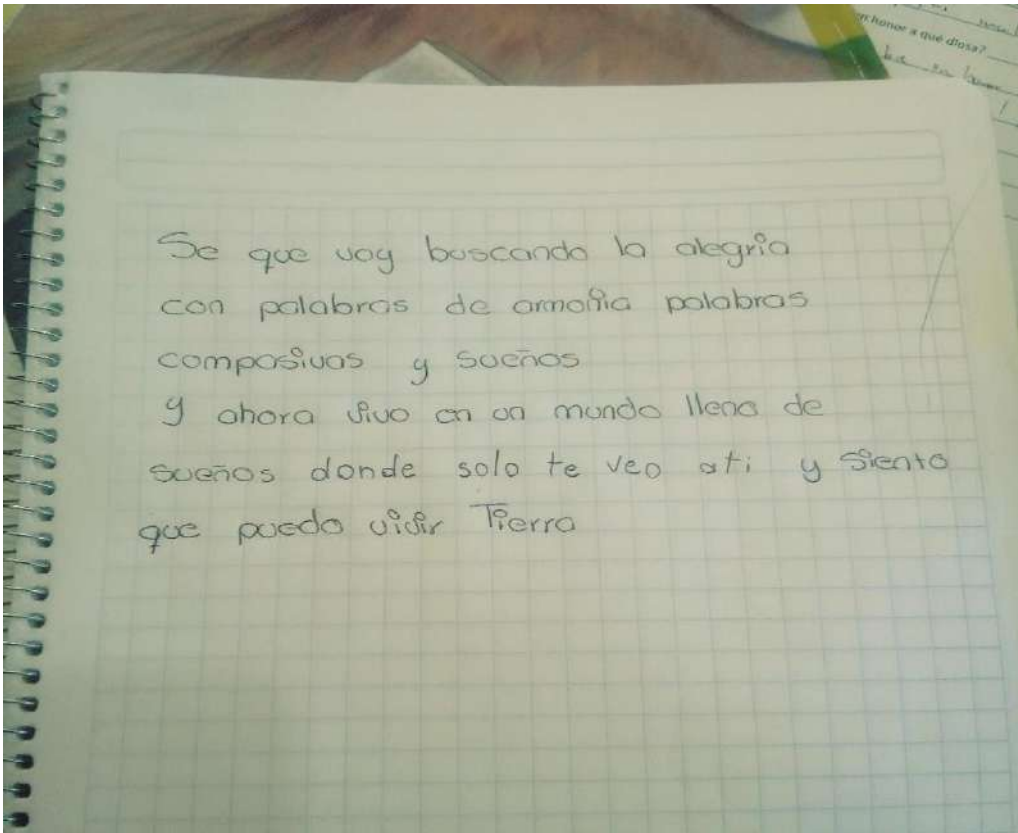 r honor a qué diosa?
Se que voy buscando la alegria
con palabras de armonia palabras
compasivas y sueños
y ahora vivo en un mundo lleno de
sueños donde solo te veo ati y siento
que puedo vivir Tierra